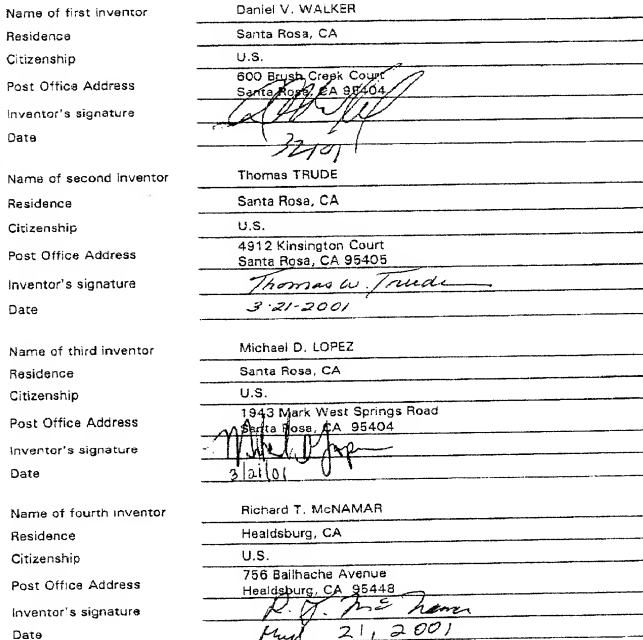 Name of first inventor Daniel V. WALKER
Residence Santa Rosa, CA
Citizenship U.S.
Post Office Address 600 Brush Creek Court
Santa Rosa, CA 95404
Inventor's signature
Date
Name of second inventor Thomas TRUDE
Residence Santa Rosa, CA
Citizenship U.S.
Post Office Address 4912 Kinsington Court
Santa Rosa, CA 95405
Inventor's signature Thomas W. Trude
Date 3-21-2001
Name of third inventor Michael D. LOPEZ
Residence Santa Rosa, CA
Citizenship U.S.
Post Office Address 1943 Mark West Springs Road
Santa Rosa, CA 95404
Inventor's signature Michael D Lopez
Date 3/21/01
Name of fourth inventor Richard T. McNAMAR
Residence Healdsburg, CA
Citizenship U.S.
Post Office Address 756 Bailhache Avenue
Healdsburg, CA 95448
Inventor's signature R. T. McNamar
Date 21, 2001